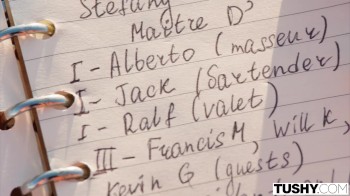 Stefany
Maitre D'
I - Alberto (masseur)
I - Jack (bartender)
I - Ralf (valet)
III - Francis M, Will K,
Kevin G (guests)
TUSHY.COM